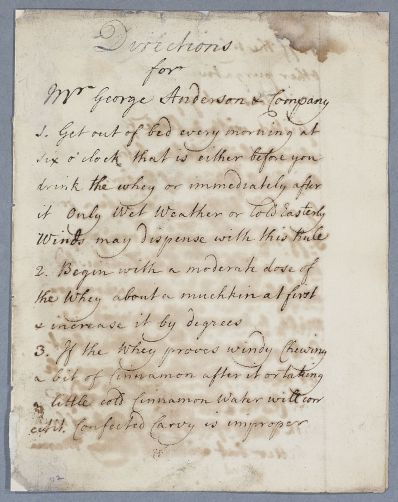 Directions
for
Mr George Anderson & Company
1. Get out of bed every morning at
six o'clock that is either before you
drink the whey or immediately after
it Only Wet Weather or Cold Easterly
Winds may dispense with this Rule
2. Begin with a moderate dose of
the Whey about a muchkin at first
& increase it by degrees
3. If the Whey proves windy Chewing
a bit of Cinnamon after it or taking
a little cold Cinnamon Water will cor
ect it. Confected Carvy is improper